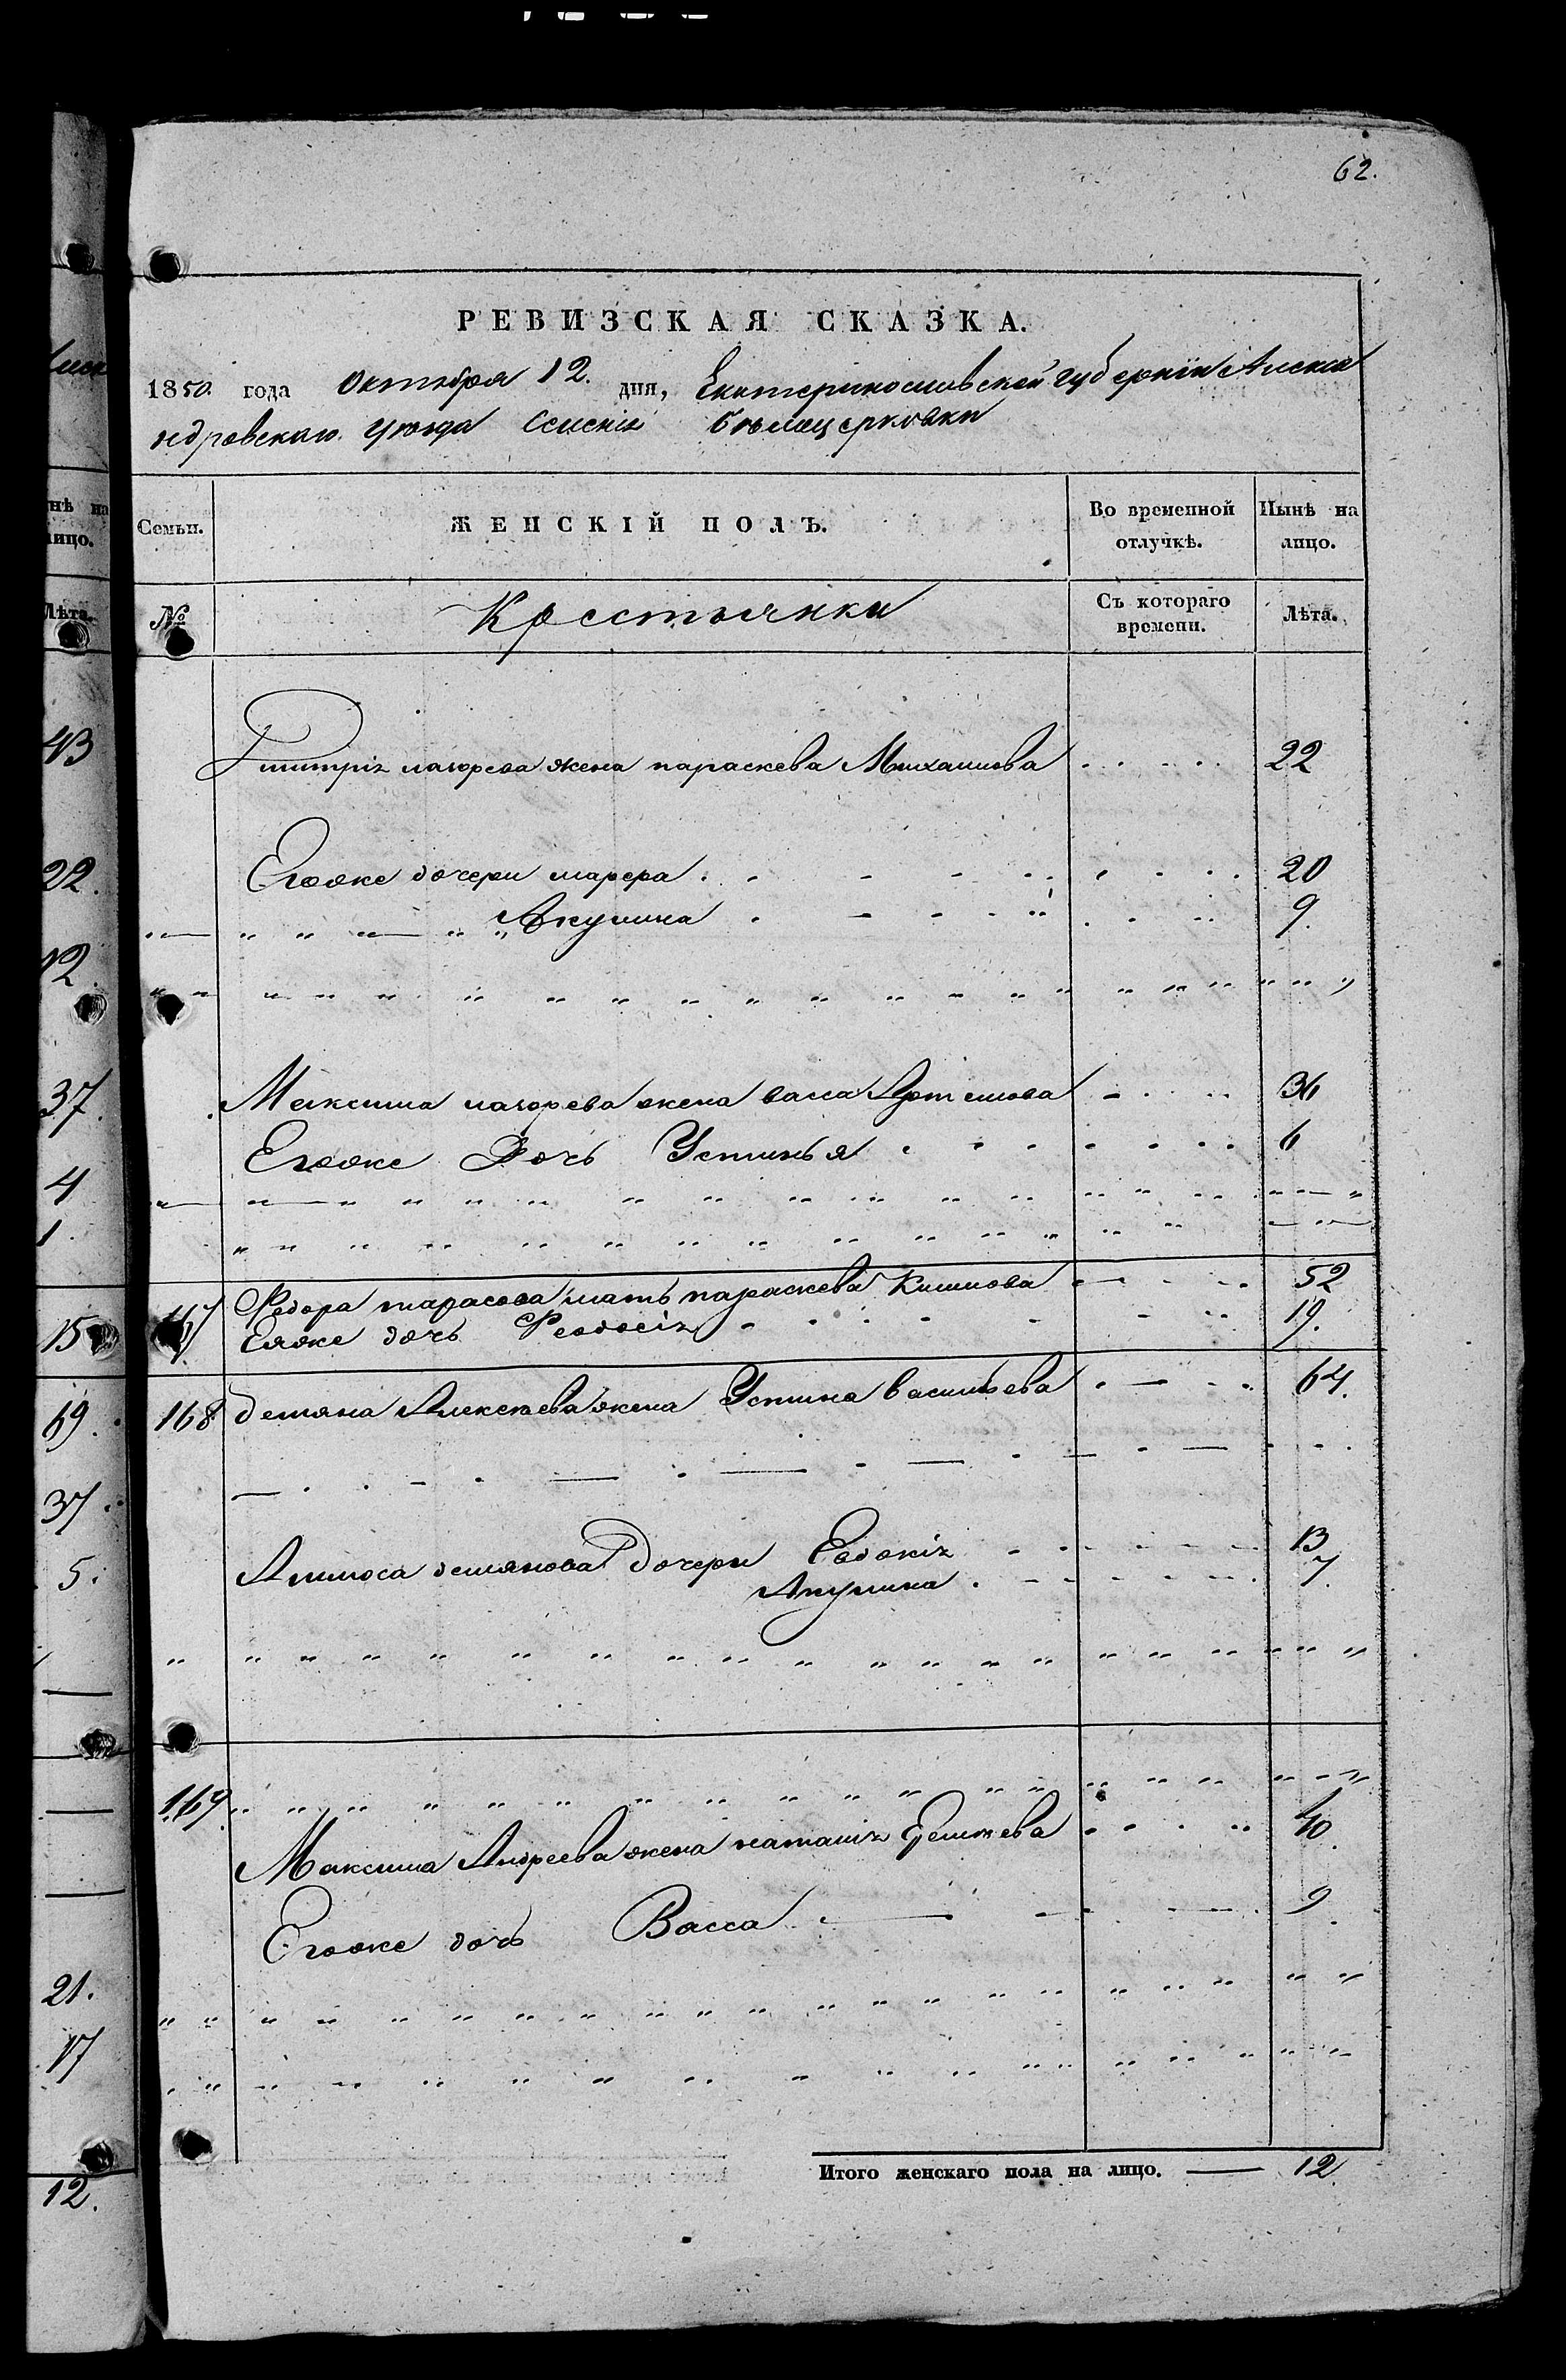 62.
РЕВИЗСКАЯ СКАЗКА.
1850. года Октября 12. дня, Екатеринославской губерніи Алекса
ндровскаго уѣзда Селенія Бѣлоцерковки
Семьи. ЖЕНСКІЙ ПОЛЪ. Во временной отлучкѣ. Нынѣ на лицо.
№ Крестьянки Съ котораго времени. Лѣта.
Дмитрія лагорева жена параскева Михаилова 22
Егоже дочери марфра 20
Акулина 9.
Максима лагорева жена васса Артемова 36
Егоже Дочь Устинья 6
Федора тарасова мать параскева Климова 52
167 Еяже дочь Феодосія 19.
168 демяна Алексѣева жена Устина васильева 64.
Аммоса демянова Дочери Евдокія 13
Акулина 7.
169.
Максима Андреева жена наталія Еремѣева 40.
Егоже дочь Васса 9.
Итого женскаго пола на лицо. — 12
нѣ на
лицо.
Лѣта.
43
22.
12.
37.
4
1.
15
69.
37.
5.
21.
17
12.